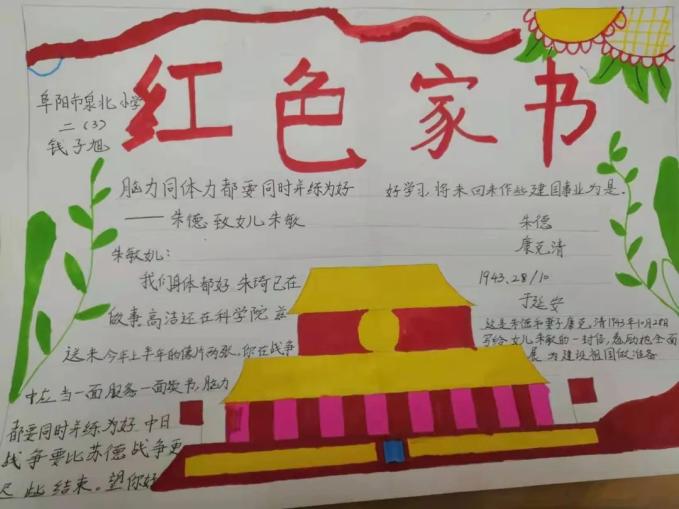 红色家书
阜阳市泉北小学
二(3)
钱子旭
脑力同体力都要同时并练为好
——朱德致女儿朱敏
朱敏女儿:
我们身体都好 朱琦已在
做事高洁还在科学院 兹
送来今年上半年的像片两张,你在战争
中应当一面服务一面读书,脑力
都要同时并练为好 中日
战争要比苏德战争更
迟些结束。望你好
好学习,将来回来作些建国事业为是。
朱德
康克清
1943.28/10
于延安
这是朱德和妻子康克清1943年10月28日
写给女儿朱敏的一封信,勉励她全面
展 为建设祖国做准备